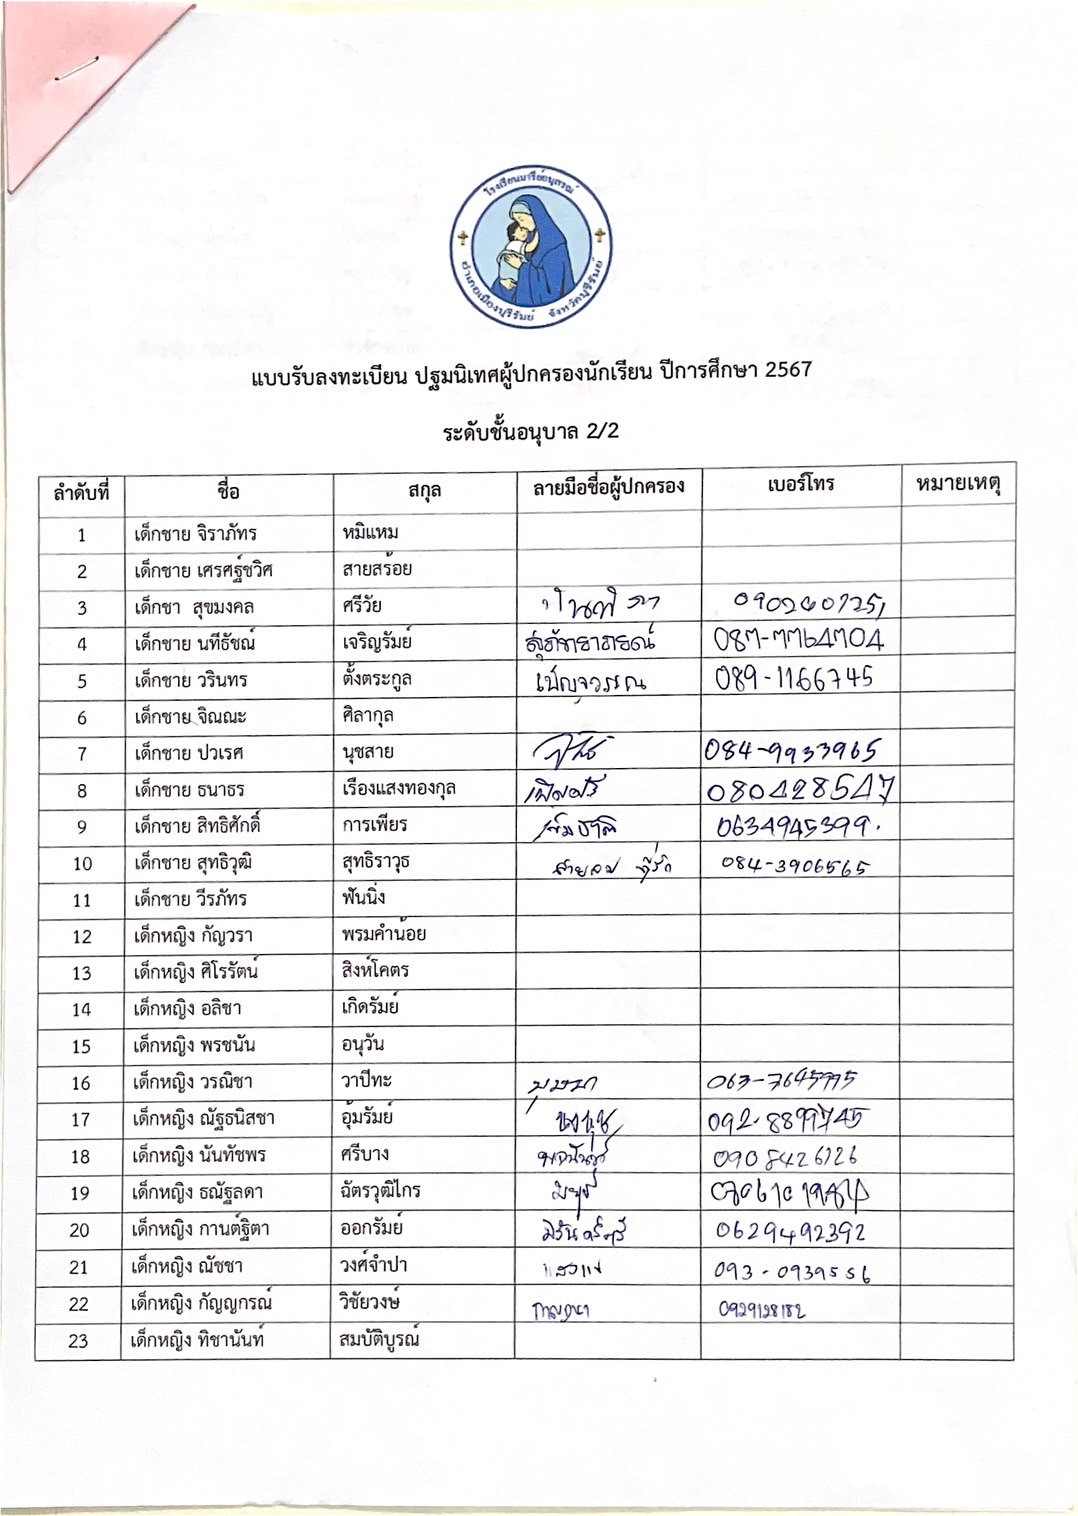 โรงเรียนมารีย์อนุสรณ์
อำเภอเมืองบุรีรัมย์ จังหวัดบุรีรัมย์
แบบรับลงทะเบียน ปฐมนิเทศผู้ปกครองนักเรียน ปีการศึกษา 2567
ระดับชั้นอนุบาล 2/2
ลำดับที่ ชื่อ สกุล ลายมือชื่อผู้ปกครอง เบอร์โทร หมายเหตุ
1 เด็กชาย จิราภัทร หมิแหม
2 เด็กชาย เศรศฐ์ชวิศ สายสร้อย
3 เด็กชา สุขมงคล ศรีวัย
4 เด็กชาย นทีธัชณ์ เจริญรัมย์ สุภัทราภรณ์ 087-7764704
5 เด็กชาย วรินทร ตั้งตระกูล เบ็ญจวรรณ 089-1166745
6 เด็กชาย จิณณะ ศิลากุล
7 เด็กชาย ปวเรศ นุชสาย 084-9933965
8 เด็กชาย ธนาธร เรืองแสงทองกุล 080428547
9 เด็กชาย สิทธิศักดิ์ การเพียร 0634945399.
10 เด็กชาย สุทธิวุฒิ สุทธิราวุธ 084-3906565
11 เด็กชาย วีรภัทร ฟันนิ่ง
12 เด็กหญิง กัญวรา พรมคำน้อย
13 เด็กหญิง ศิโรรัตน์ สิงห์โคตร
14 เด็กหญิง อลิชา เกิดรัมย์
15 เด็กหญิง พรชนัน อนุวัน
16 เด็กหญิง วรณิชา วาปีทะ บุษบา
17 เด็กหญิง ณัฐธนิสชา อุ้มรัมย์ นงนุช
18 เด็กหญิง นันทัชพร ศรีบาง 0908426126
19 เด็กหญิง ธณัฐลดา ฉัตรวุฒิไกร
20 เด็กหญิง กานต์ฐิตา ออกรัมย์ 0629492392
21 เด็กหญิง ณัชชา วงศ์จำปา 093-0939556
22 เด็กหญิง กัญญกรณ์ วิชัยวงษ์ กาญจนา 0929128182
23 เด็กหญิง ทิชานันท์ สมบัติบูรณ์